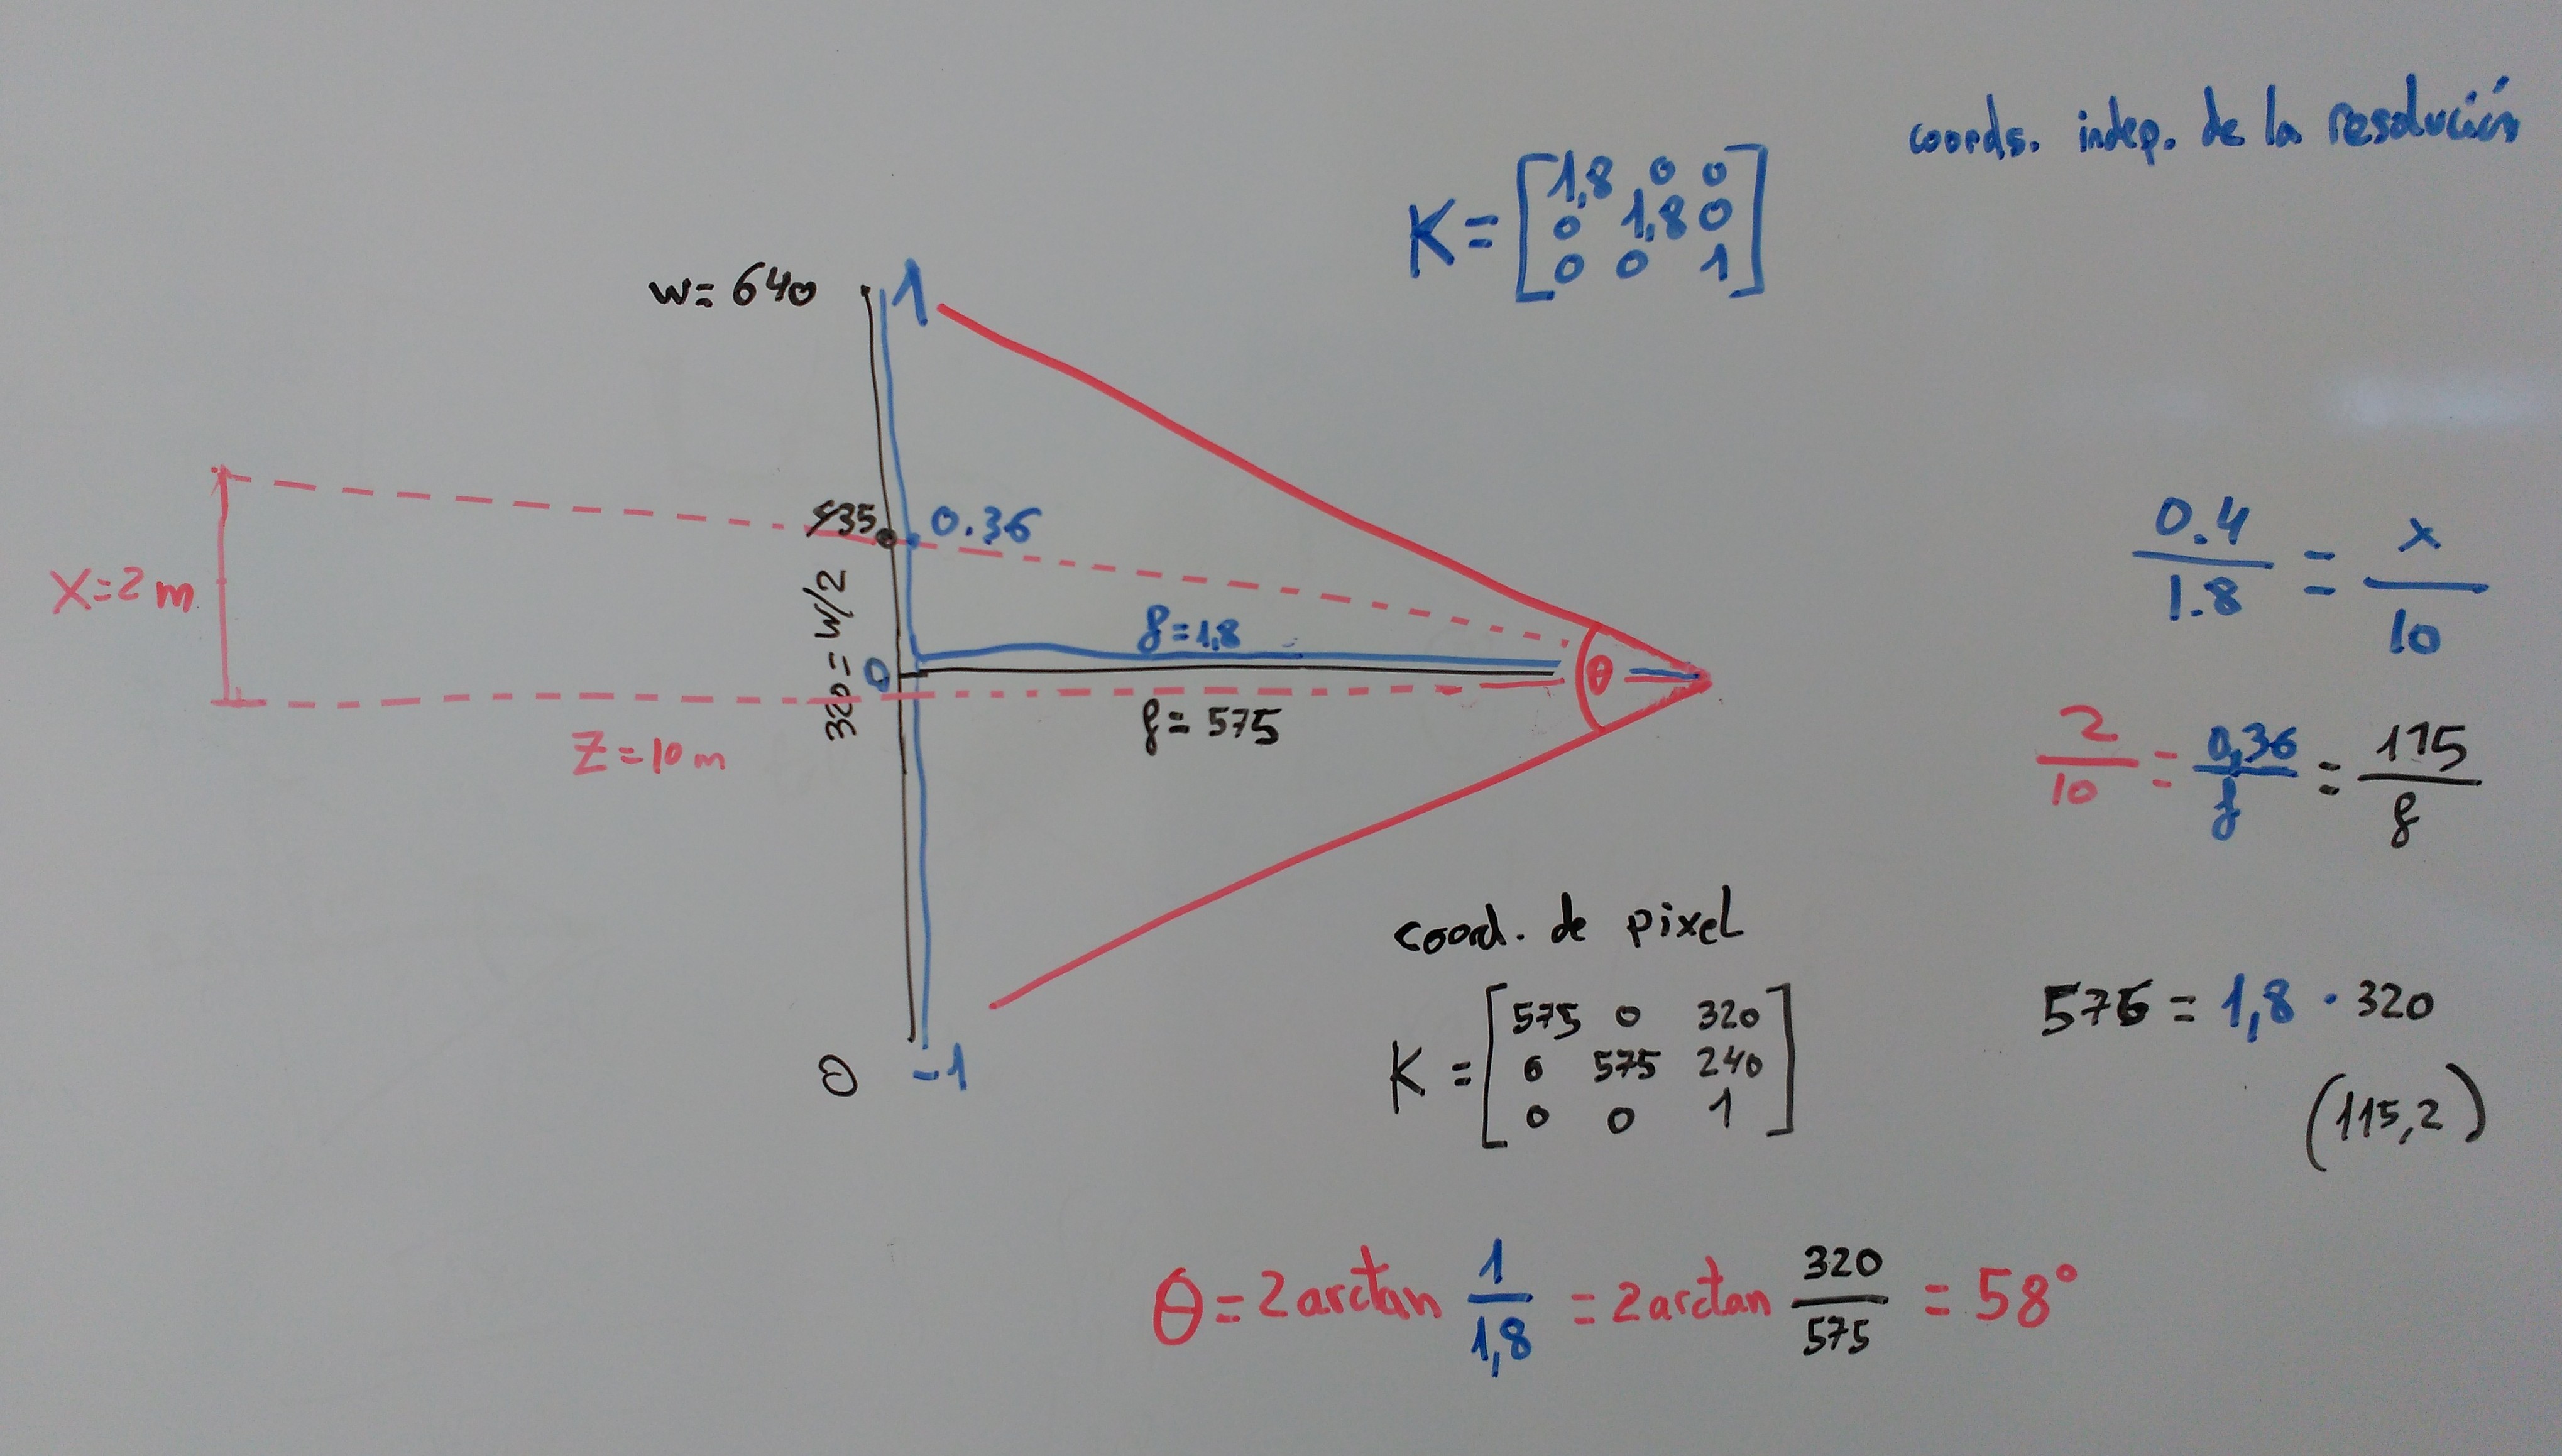 coords. indep. de la resolución
K = [1,8 0 0
0 1,8 0
0 0 1]
w = 640
1
435
0.36
X = 2 m
320 = W/2
0
f = 1,8
θ
f = 575
Z = 10 m
0
-1
0.4/1.8 = x/10
2/10 = 0,36/f = 115/f
coord. de pixel
K = [575 0 320
0 575 240
0 0 1]
576 = 1,8 · 320
(115,2)
θ = 2 arctan 1/1,8 = 2 arctan 320/575 = 58°